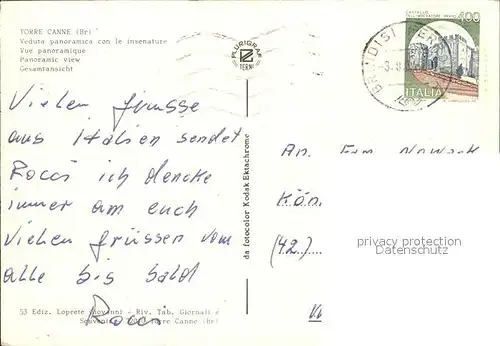 TORRE CANNE (Br)
Veduta panoramica con le insenature
Vue panoramique
Panoramic view
Gesamtansicht
PLURIGRAF
TERNI
CASTELLO
400
ITALIA
BRINDISI
Vielen grüsse
aus Italien sendet
Rocci ich dencke
immer am euch
Vielen grüssen vom
alle bis bald
Rocci
da fotocolor Kodak Ektachrome
An. Fam Nowack
Kön
(42.)
privacy protection
Datenschutz
53 Ediz. Loprete Giovanni - Riv. Tab. Giornali e
Souvenirs Torre Canne (Br)